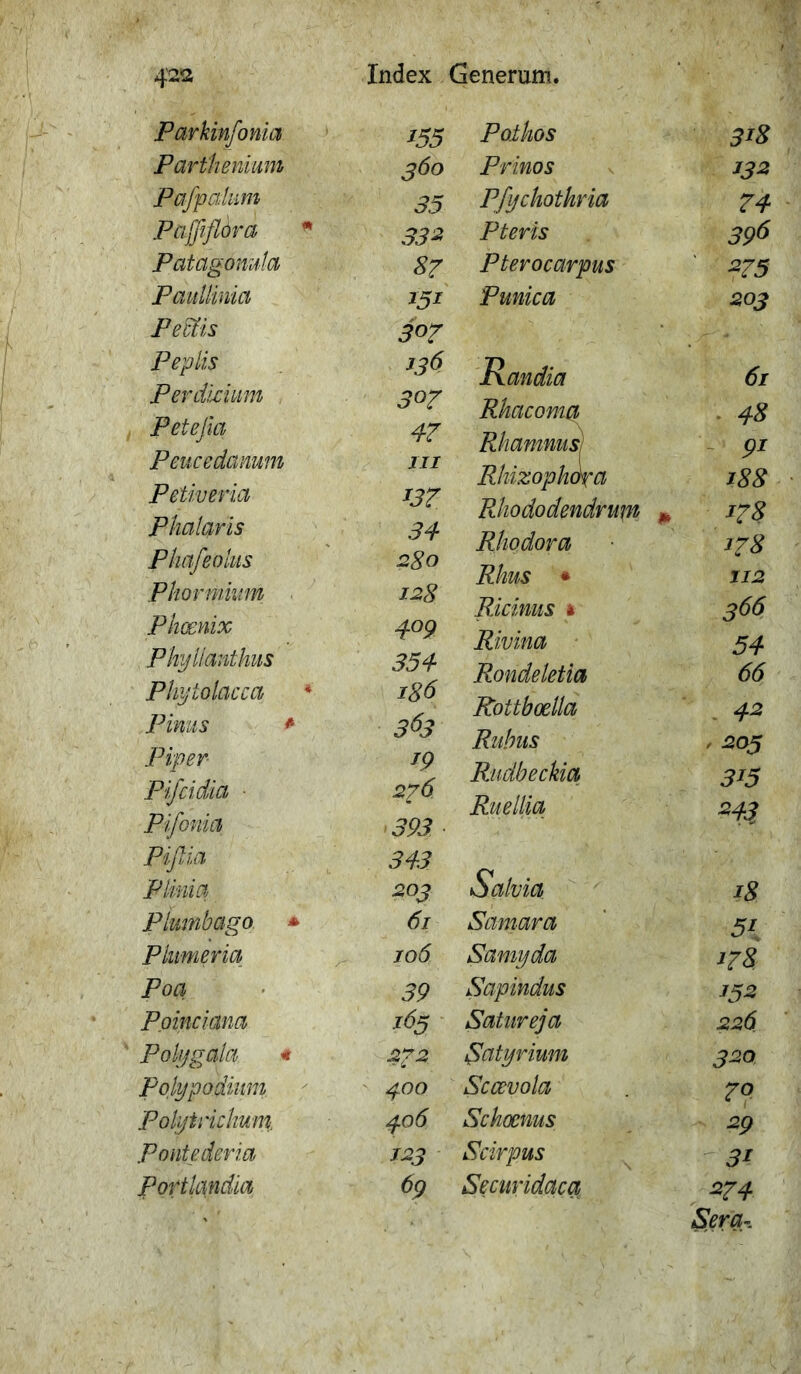 422 Index Generum.
Parkinſonia 155
Parthenium 360
Paſpalum 35
Paſſiflora * 332
Patagonula 87
Paullinia 151
Pectis 307
Peplis 136
Perdicium 307
Peteſia 47
Peucedanum 111
Petiveria 137
Phalaris 34
Phaſeolus 280
Phormium 128
Phœnix 409
Phyllanthus 354
Phytolacca * 186
Pinus * 363
Piper 19
Piſcidia 276
Piſonia 393
Piſtia 343
Plinia 203
Plumbago * 61
Plumeria 106
Poa 39
Poinciana 165
Polygala * 272
Polypodium 400
Polytrichum 406
Pontederia 123
Portlandia 69
Pothos 318
Prinos 132
Pſychothria 74
Pteris 396
Pterocarpus 275
Punica 203
Randia 61
Rhacoma 48
Rhamnus 91
Rhizophora 188
Rhododendrum * 178
Rhodora 178
Rhus * 112
Ricinus * 366
Rivina 54
Rondeletia 66
Rottbœlla 42
Rubus 205
Rudbeckia 315
Ruellia 243
Salvia 18
Samara 51
Samyda 178
Sapindus 152
Satureja 226
Satyrium 320
Scævola 70
Schœnus 29
Scirpus 31
Securidaca 274
Sera-